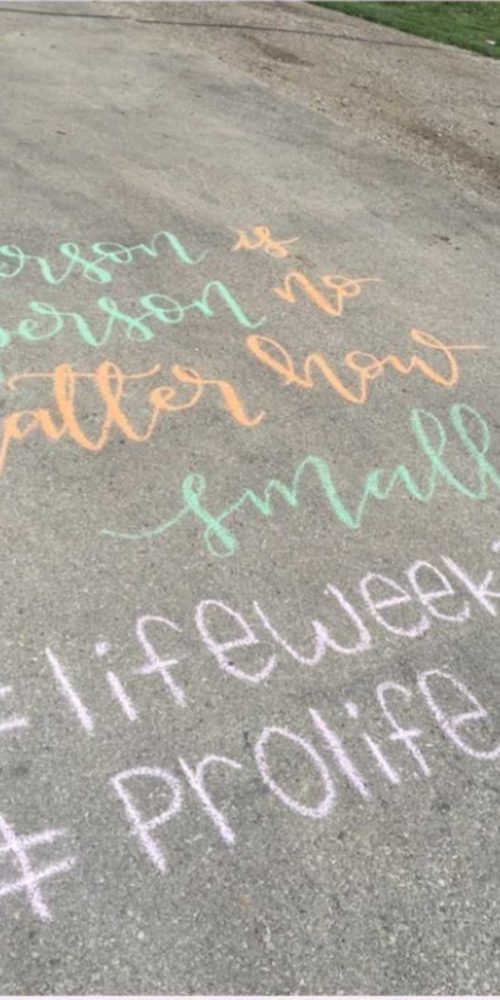 erson is
person no
atter how
small
#lifeweek
#prolife